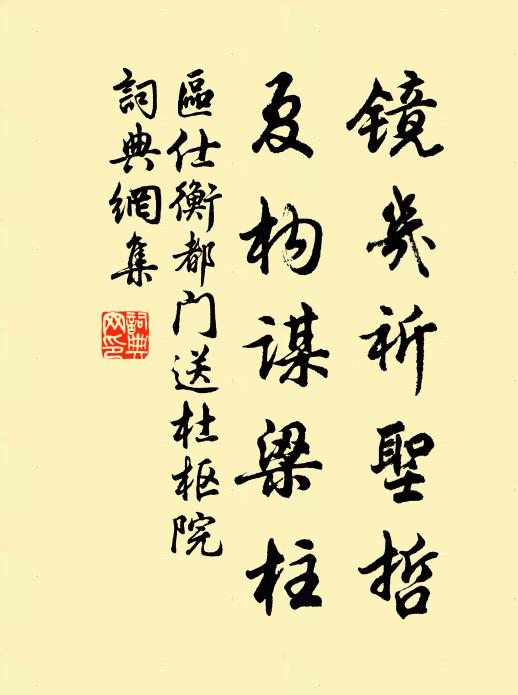 镜几祈聖哲
夏构谋梁柱
區仕衡都门送杜枢院
詞典網集
詞典网印